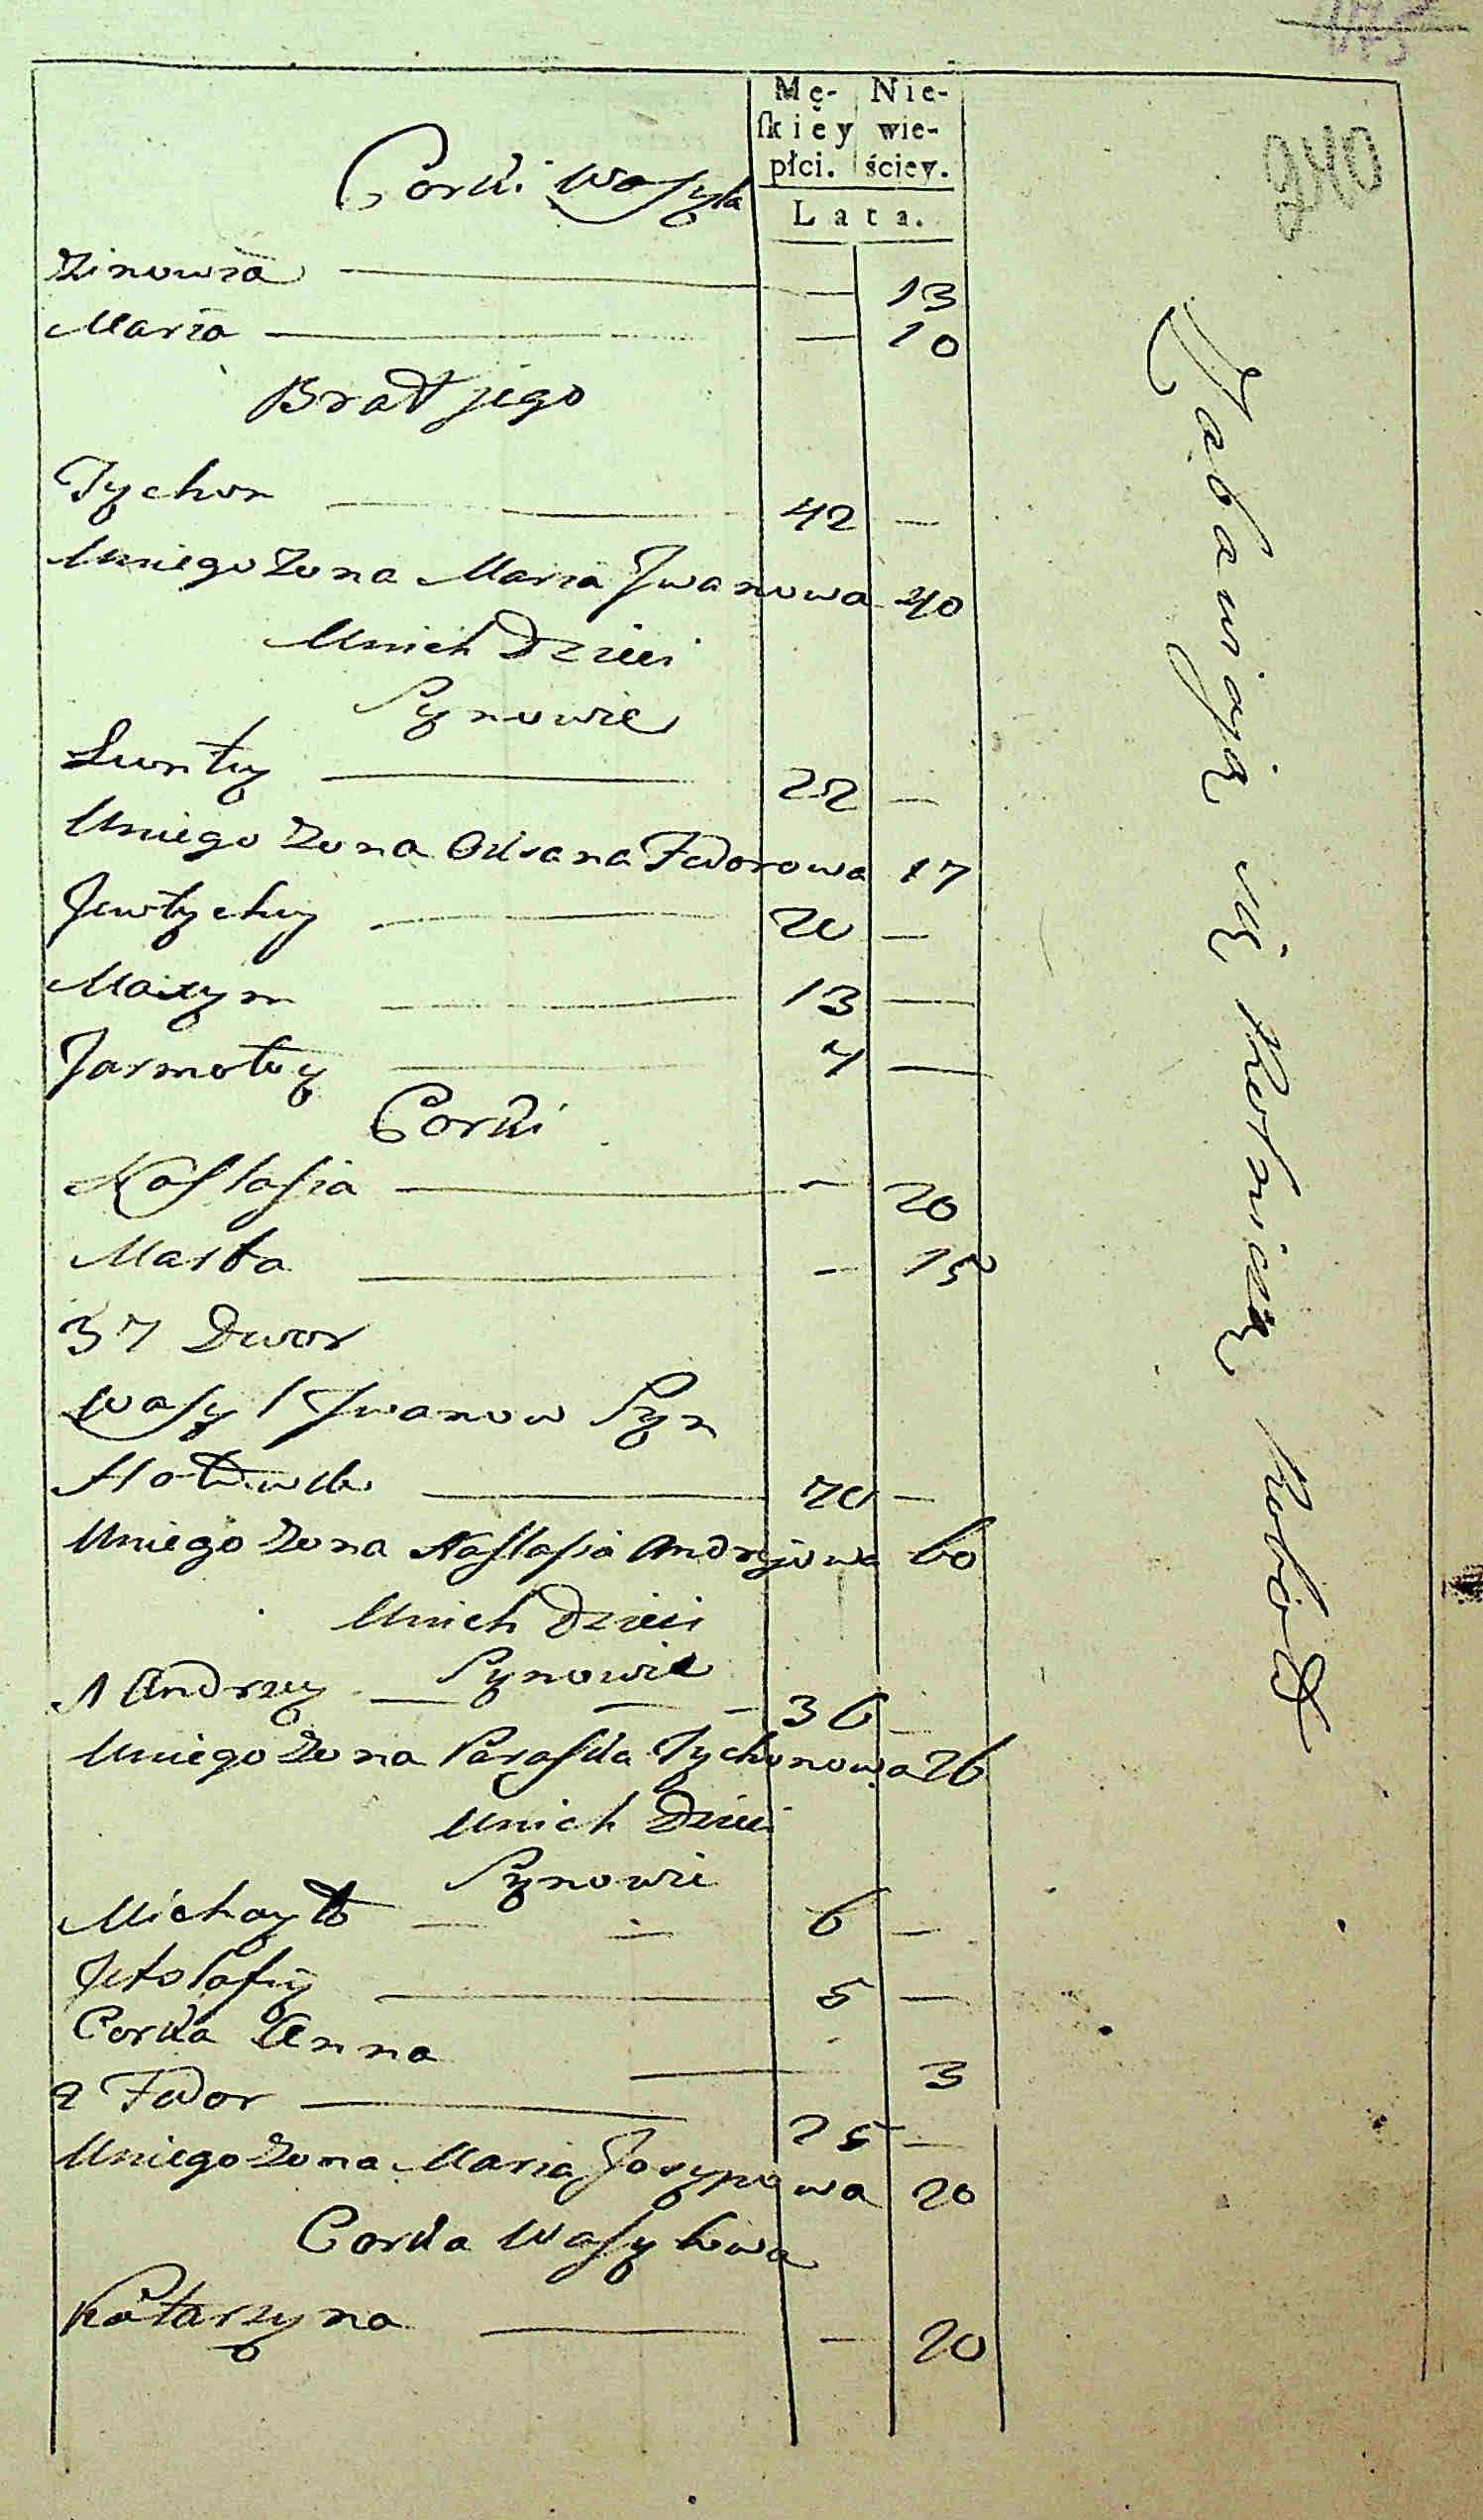 240
Mę- Nie-
ſkiey wie-
płci. ściey.
Lata.
Corki Wasyla
Zinowia — 13
Maria — 10
Brat jego
Tychon 42 —
Uniego Zona Maria Jwanowa 40
Unich Dzieci
Synowie
22 —
Uniego Zona Oksana Fedorowa 17
Jewtychy 20 —
Maxym 13 —
Jarmołuy 7 —
Corki
Nastasia — 20
Marta — 15
37 Dwor
Wasyl Jwanow Syn
70 —
Uniego Zona Nastasia Andrejowa 60
Unich Dzieci
Synowie
1 Andrzey 36 —
Uniego Zona Paraska Tychonowa 26
Unich Dzieci
Synowie
Michayło 6 —
5 —
Corka Anna 3
2 Fedor 25 —
Uniego Zona Maria Josypowa 20
Corka Wasylowa
Katarzyna — 20
Zabawiają się Rolniczą Robotą